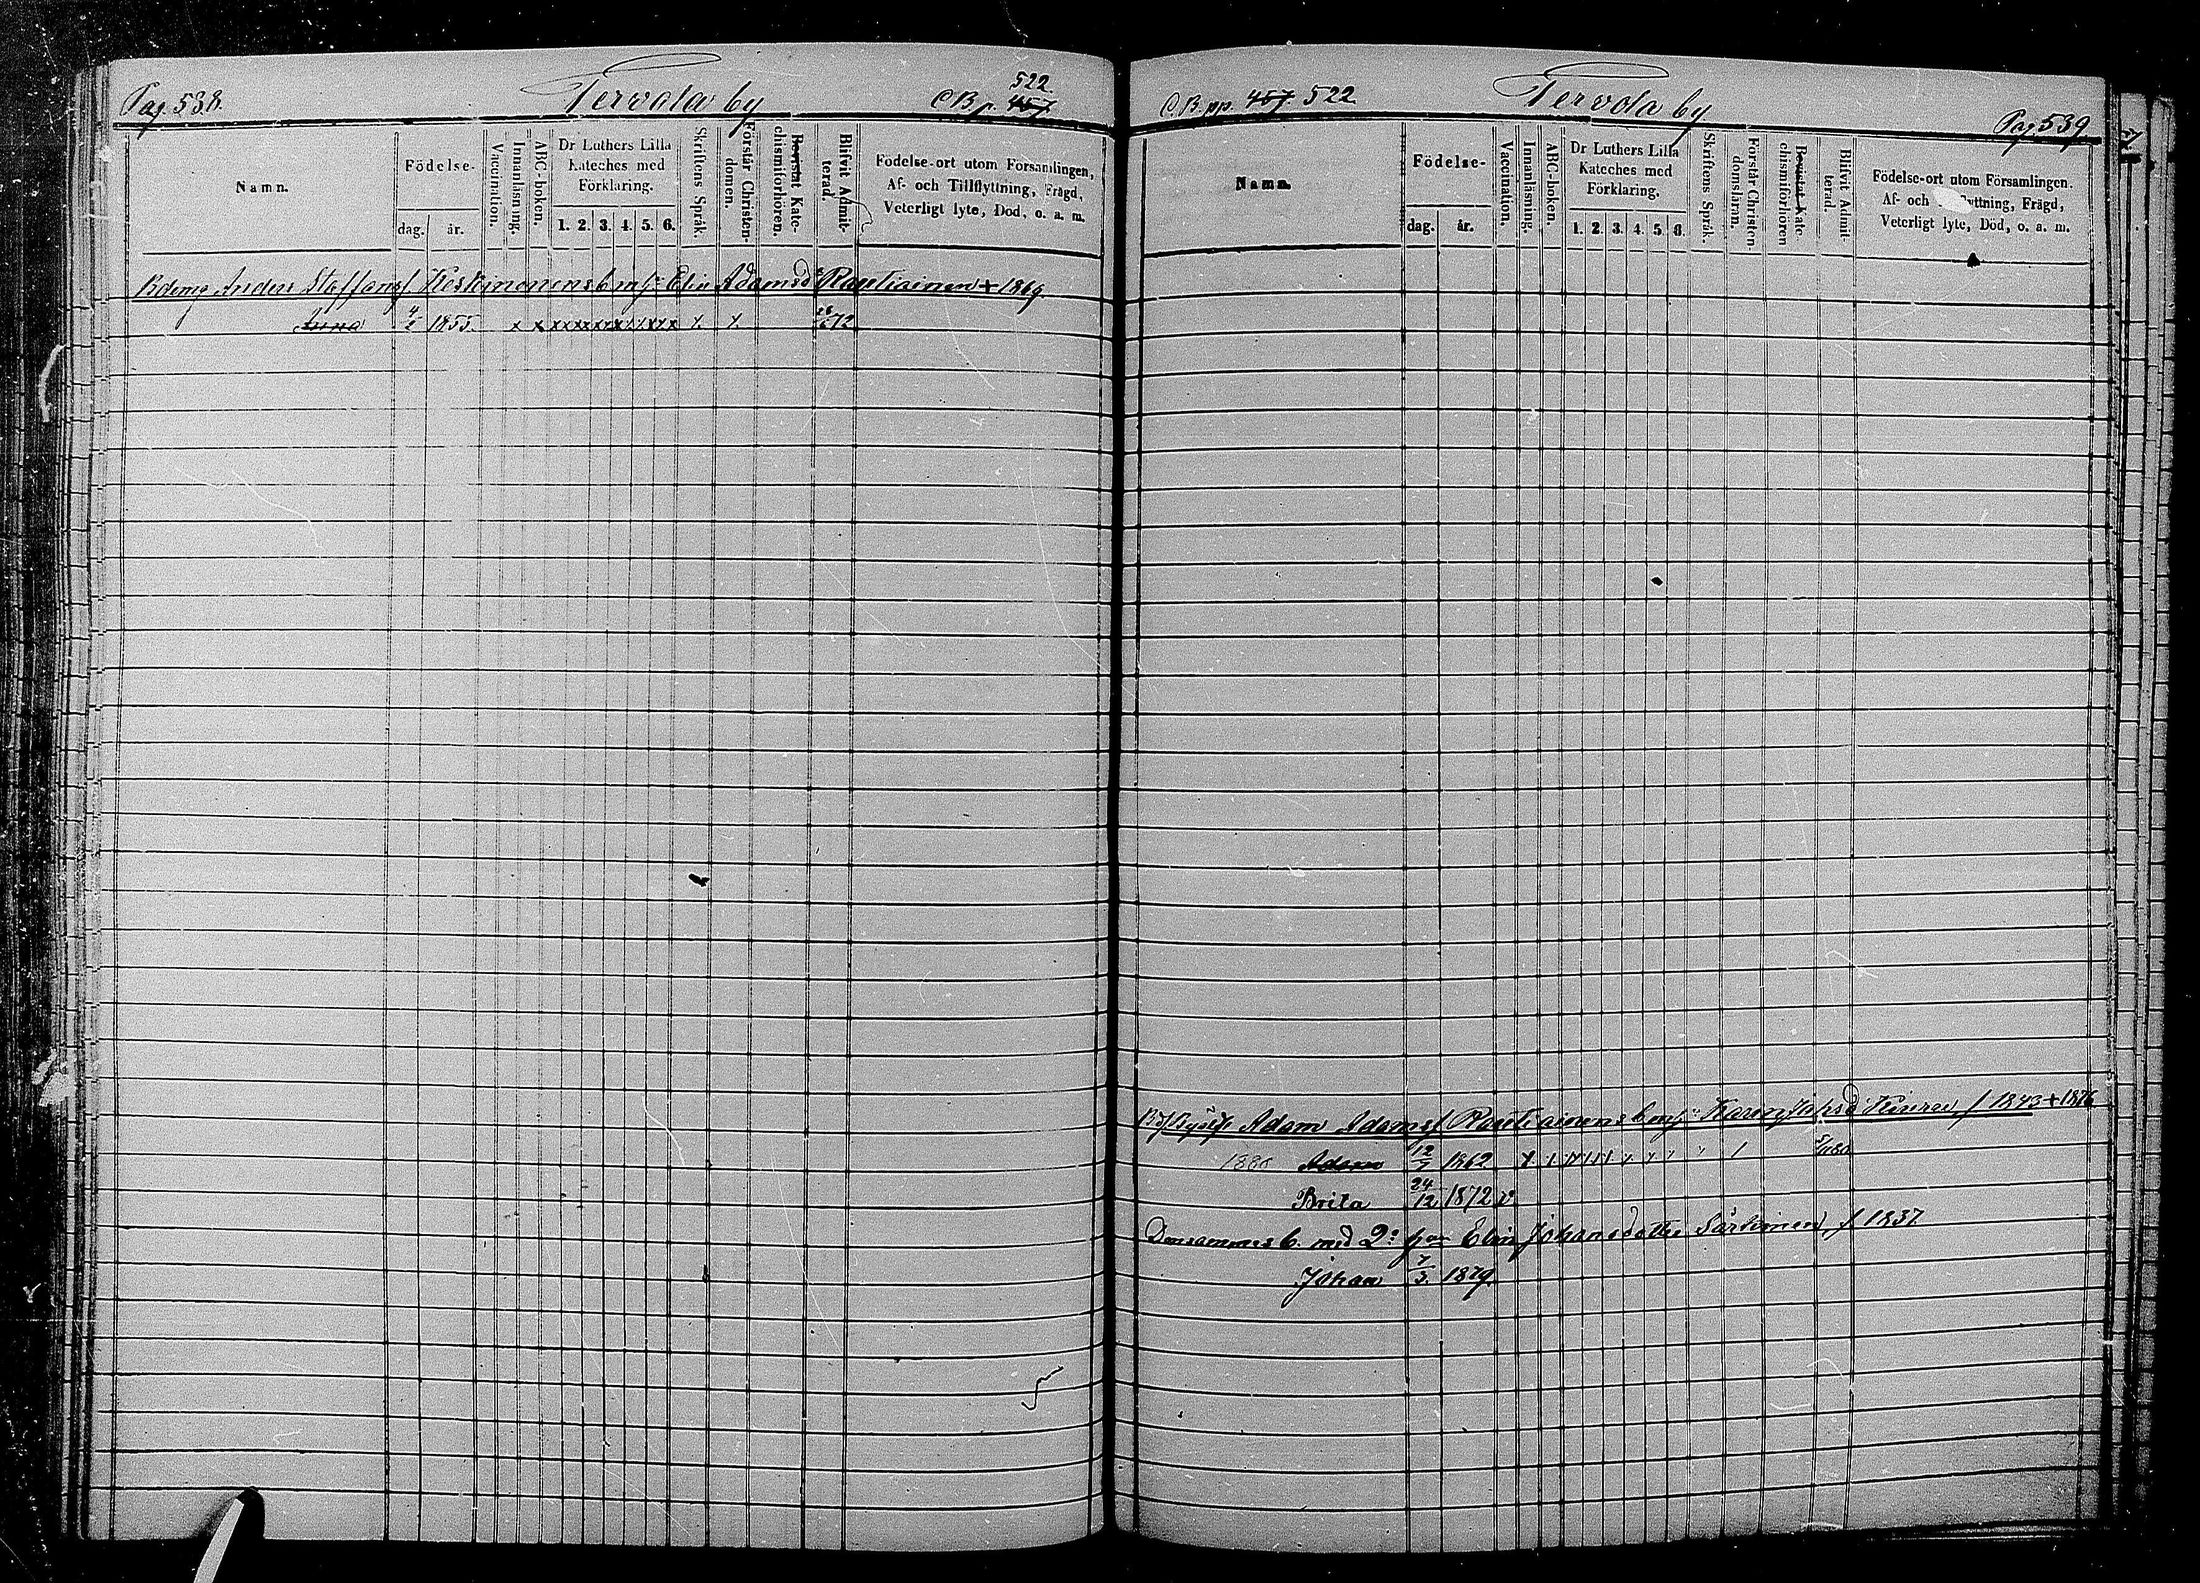 Pag. 538.
Tervola by
C.B. p. 457 522
Namn.
Födelse-
dag. år.
Vaccination.
Innanläsning.
ABC-boken.
Dr Luthers Lilla
Kateches med
Förklaring.
1. 2. 3. 4. 5. 6.
Skriftens Språk.
Förstår Christen-
domen.
Bevistat Kate-
chismiförhören.
Blifvit Admit-
terad.
Födelse-ort utom Församlingen,
Af- och Tillflyttning, Frägd,
Veterligt lyte, Död, o. a. m.
Anders Staffansf Keskinenens b. m. h. Elin Adamsdr Rautiainen + 1869.
Anna 1855. x x x x x x x x x x 72
C.B. pp. 457 522
Tervola by
Pag. 539.
Namn.
Födelse-
dag. år.
Vaccination.
Innanläsning.
ABC-boken.
Dr Luthers Lilla
Kateches med
Förklaring.
1. 2. 3. 4. 5. 6.
Skriftens Språk.
Förstår Christen-
domslärn.
Bevistat Kate-
chismiförhören
Blifvit Admit-
terad.
Födelse-ort utom Församlingen.
Af- och flyttning, Frägd,
Veterligt lyte, Död, o. a. m.
Adam Adamsf Rautiainens b. m. h. Karin f 1843 + 1876
1886 Adam 12/7 1862
Brita 24/12 1872 v
Densammes b. med 2: fru Elin Johansdotter Särkinen f 1837.
Johan 7/3. 1879.